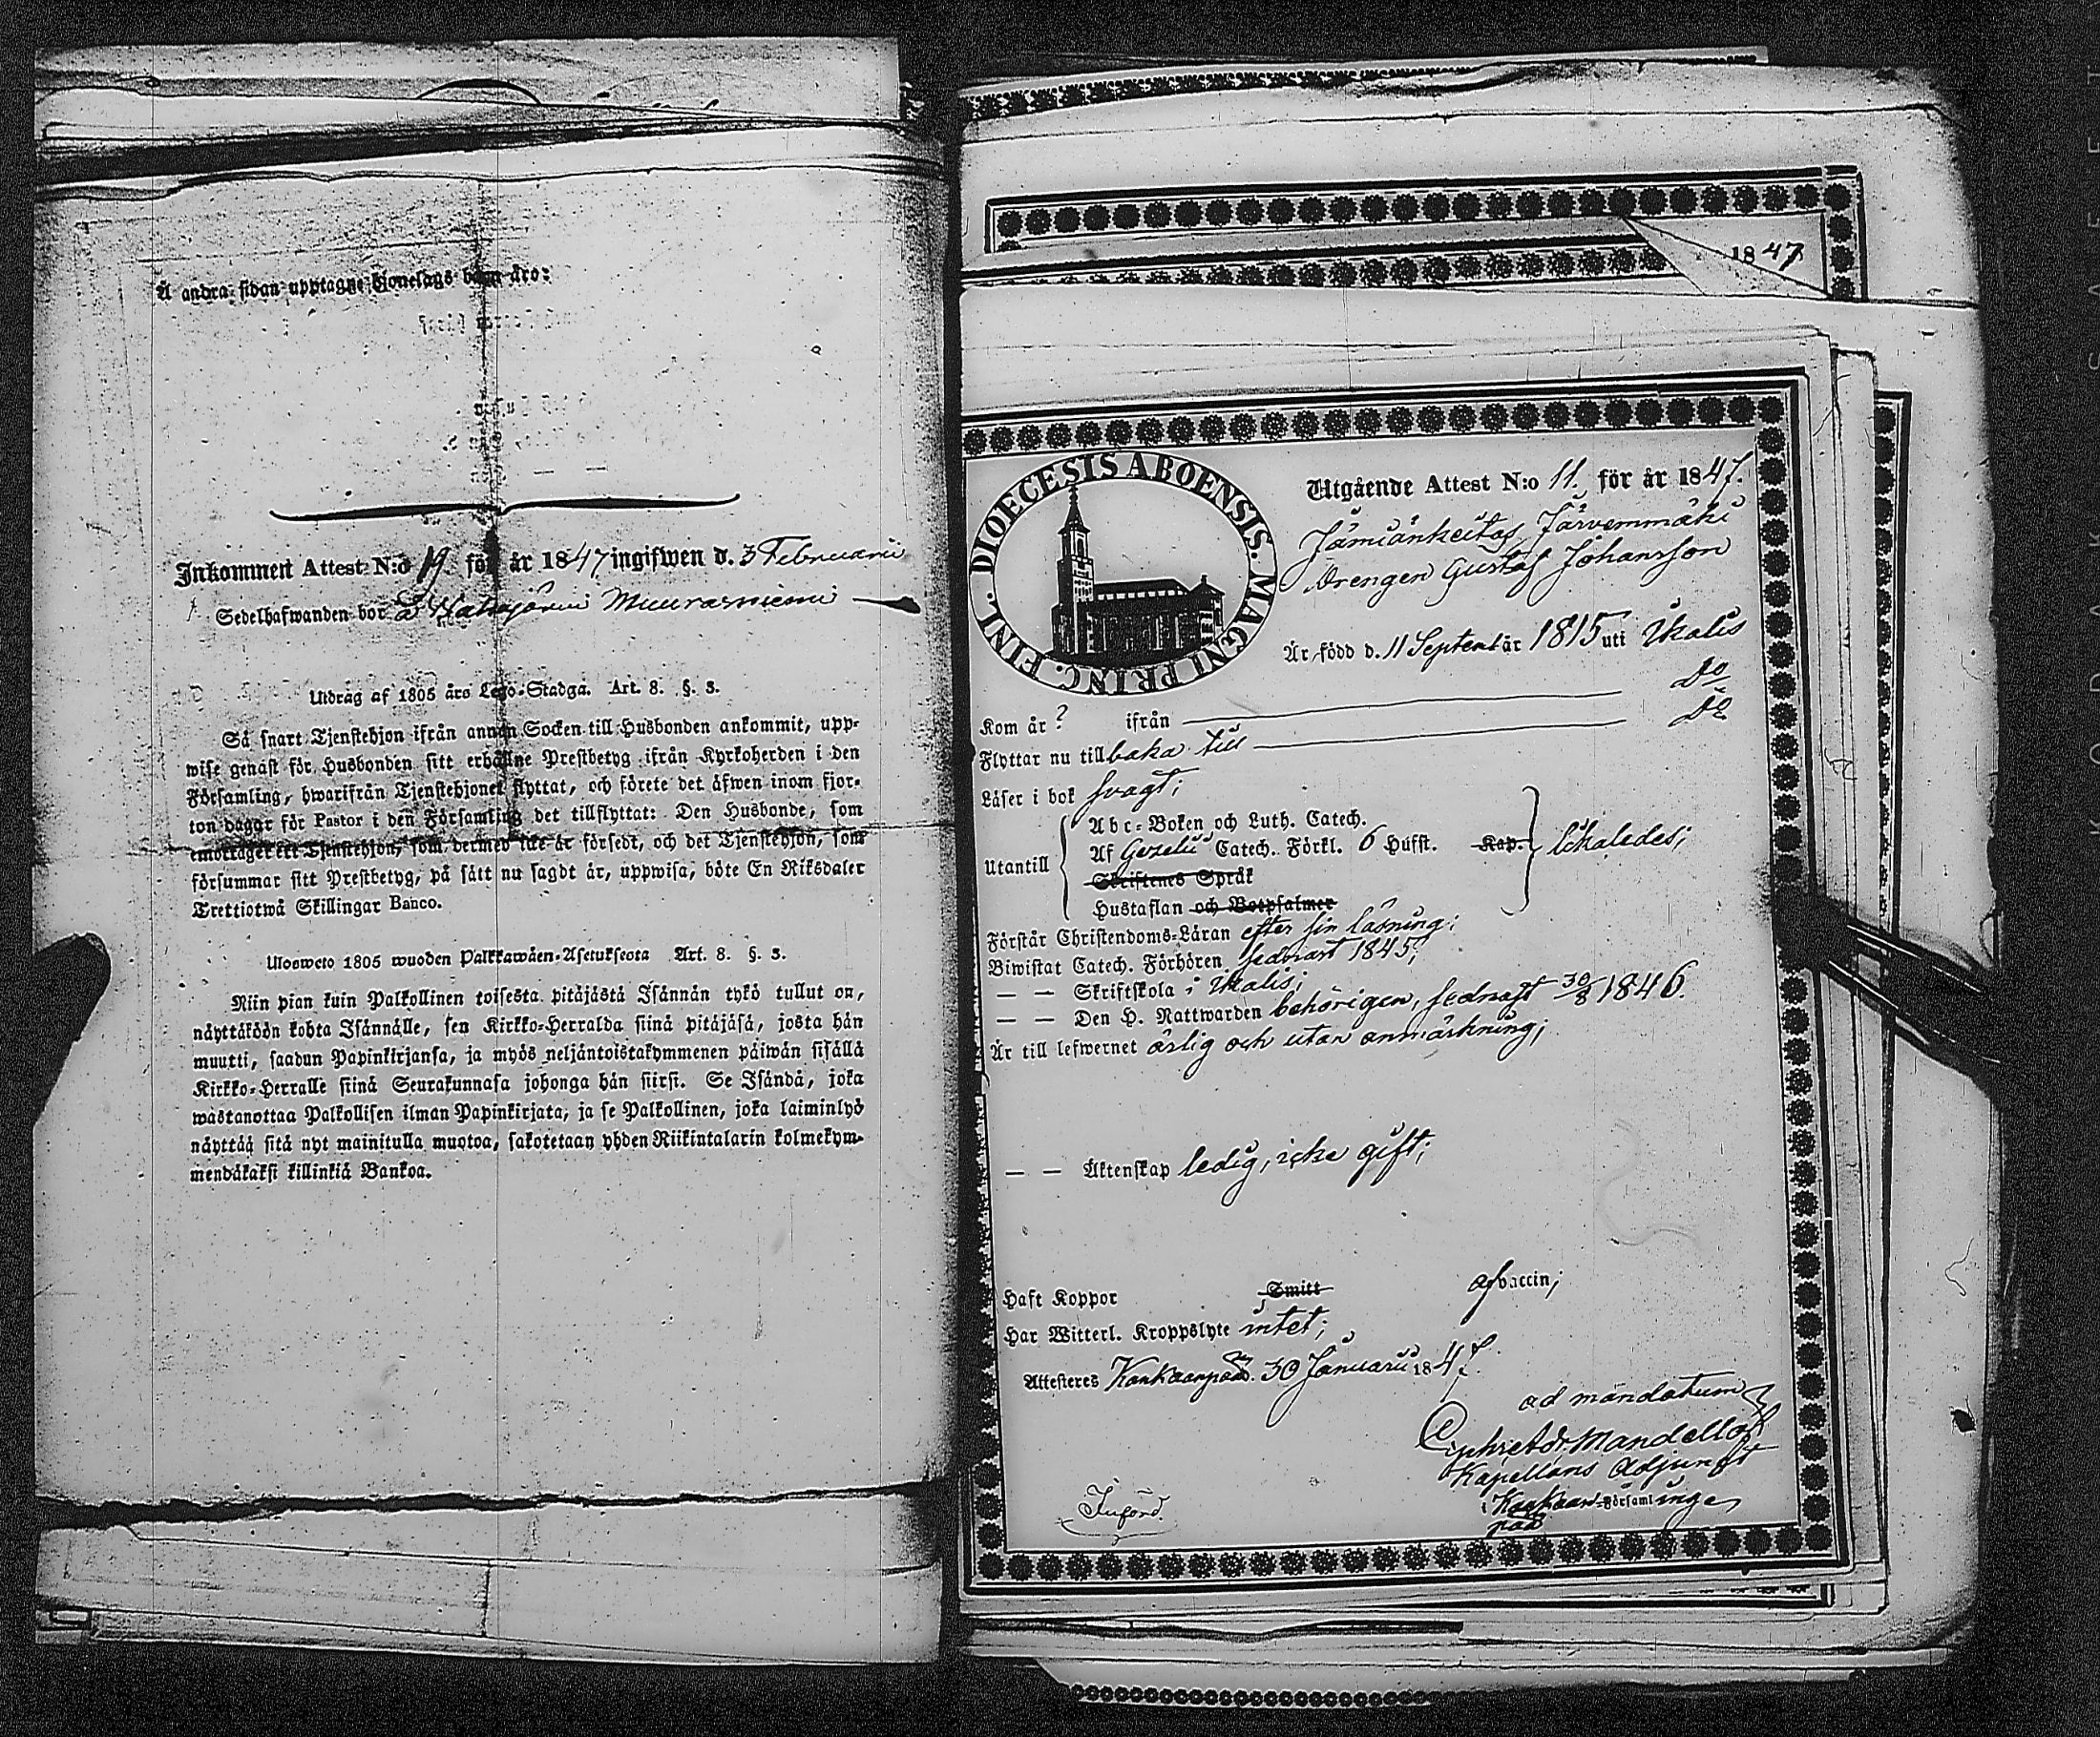 Å andra sidan upptagne hjonelags barn äro:
Inkommen Attest N:o 19. för år 1847 ingifwen d. 3 Februarii
Sedelhafwanden bor å Muurasniemi
Utdrag af 1805 års Lego-Stadga. Art. 8. §. 3.
Så snart Tjenstehjon ifrån annan Socken till Husbonden ankommit, upp-
wise genast för Husbonden sitt erhållne Prestbetyg ifrån Kyrkoherden i den
Församling, hwarifrån Tjenstehjonet flyttat, och förete det äfwen inom fjor-
ton dagar för Pastor i den Församling det tillflyttat: Den Husbonde, som
emottager ett Tjenstehjon, som dermed icke är försedt, och det Tjenstehjon, som
försummar sitt Prestbetyg, på sätt nu sagdt är, uppwisa, böte En Riksdaler
Trettiotwå Skillingar Banco.
Ulosweto 1805 wuoden Palkkawäen-Asetuksesta Art. 8. §. 3.
Niin pian kuin Palkollinen toisesta pitäjästä Isännän tykö tullut on,
näyttäköön kohta Isännälle, sen Kirkko-Herralda siinä pitäjäsä, josta hän
muutti, saadun Papinkirjansa, ja myös neljäntoistakymmenen päiwän sisällä
Kirkko-Herralle siinä Seurakunnasa johonga hän siirsi. Se Isändä, joka
wastanottaa Palkollisen ilman Papinkirjata, ja se Palkollinen, joka laiminlyö
näyttää sitä nyt mainitulla muotoa, sakotetaan yhden Riikintalarin kolmekym-
mendäkaksi killinkiä Bankoa.
1847
DIOECESIS ABOENSIS. MAGNI PRINC. FINL.
Utgående Attest N:o 11. för år 1847.
Jämiänkeitas Järvenmäki
Drengen Gustaf Johansson
Är född d. 11 Septemb är 1815 uti Ikalis
Kom år ? ifrån Do
Flyttar nu tillbaka till Do
Läser i bok svagt;
Utantill
Abc-Boken och Luth. Catech.
Af Gezelii Catech. Förkl. 6 Hufst. Kap. likaledes;
Skriftenes Språk
Hustaflan och Botpsalmer
Förstår Christendoms-Läran efter sin läsning;
Biwistat Catech. Förhören sednast 1845;
— — Skriftskola i Ikalis;
— — Den H. Nattwarden behörigen, sednast 30/8 1846.
Är till lefwernet ärlig och utan anmärkning;
— — Äktenskap ledig, icke gift;
Haft Koppor Smitt af vaccin;
Har Witterl. Kroppslyte intet;
Attesteres Kankaanpää d. 30 Januarii 1847.
ad mandatum
Mandellöf
Kapellans Adjunkt
i Kankaan-Församlinge
pää
Införd.